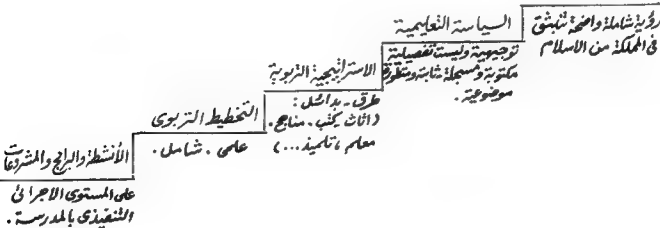 رؤية شاملة واضحة تنبثق
فى المملكة من الاسلام
السياسة التعليمية
توجيهية وليست تفصيلية
مكتوبة ومسجلة ثابتة ومتطورة
موضوعية .
الاستراتيجية التربوية
طرق - بدائل :
( اثاث . كتب . مناهج .
معلم ، تلميذ ... )
التخطيط التربوى
علمى . شامل .
الأنشطة والبرامج والمشروعات
على المستوى الاجرائى
التنفيذى بالمدرسة .